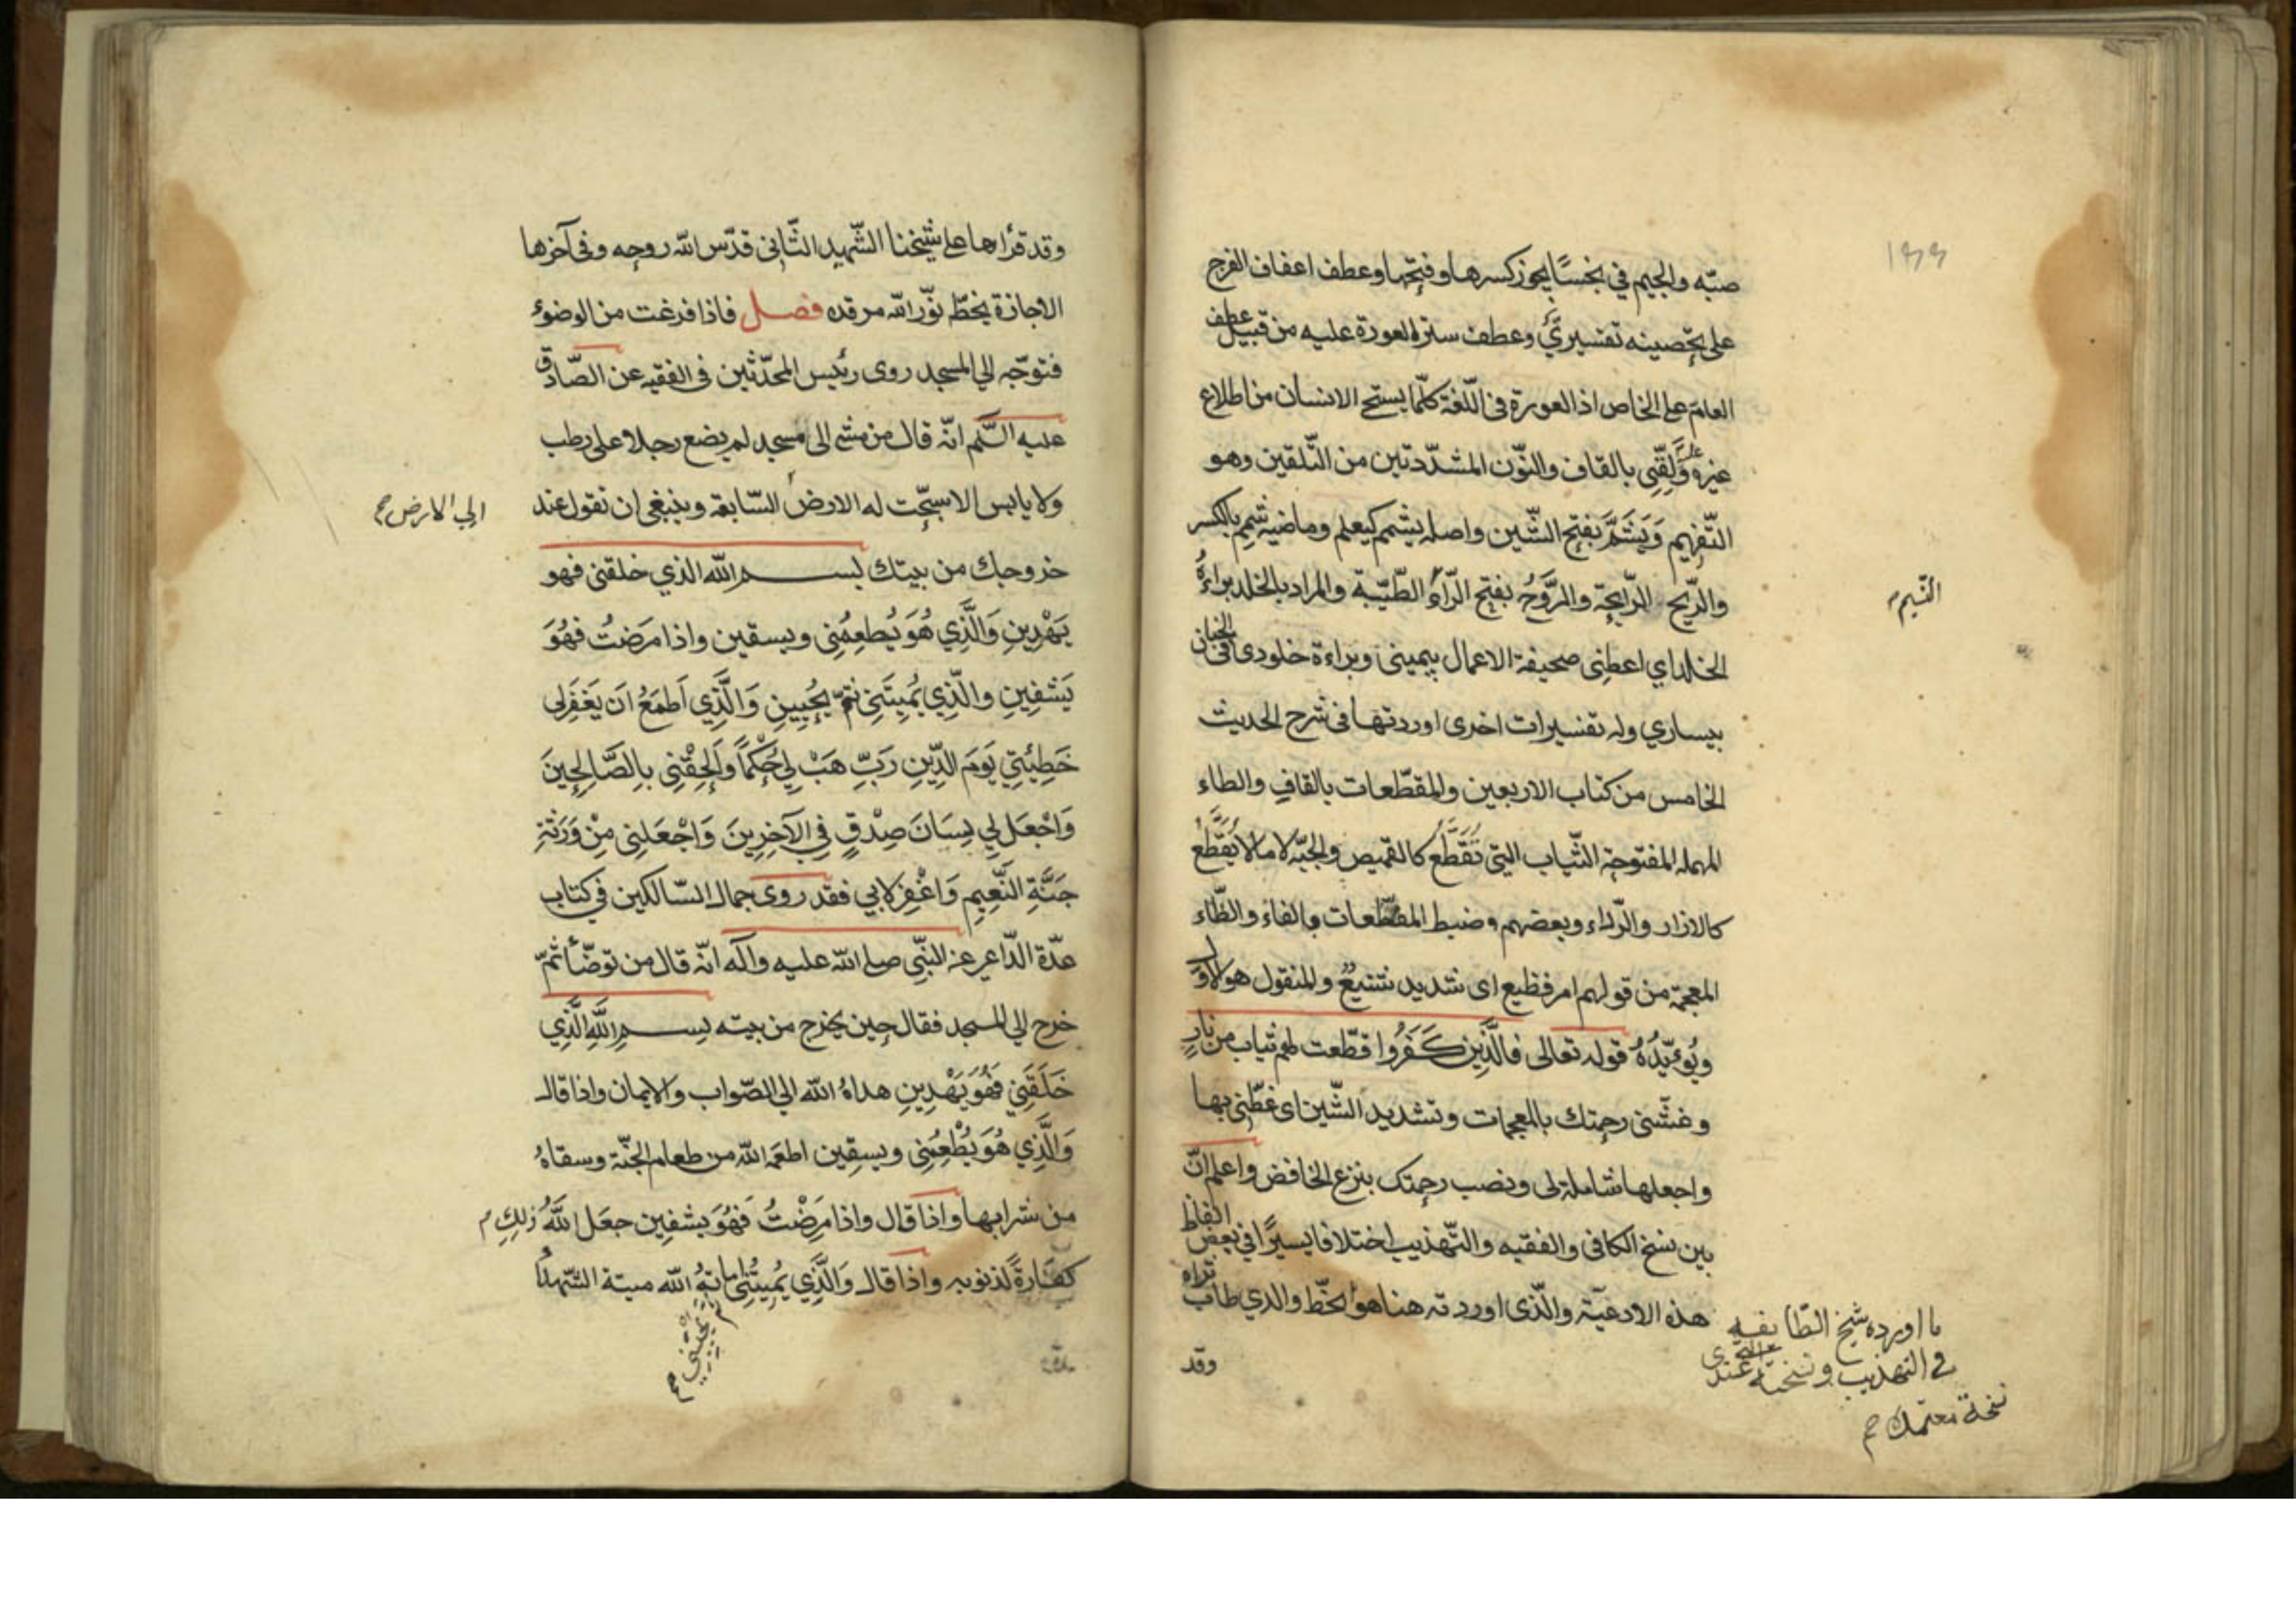 صبّه والجيم في نجسًا يجوز كسرها وفتحها وعطف اعفاف الفرج
على تحصينه تفسيريّ وعطف ستر العورة عليه من قبيل عطف
العام على الخاص اذ العورة في اللّغة كلّما يستحي الانسان من اطلاع
غيره عليه وَلَقِّنّي بالقاف والنّون المشدّدتين من التّلقين وهو
التّفهيم وَيَشَمُّ بفتح الشّين واصله يشمم كيعلم وماضيه شمِم بالكسر
والرّيح الرّايحة والرَّوْحُ بفتح الرّاء الطّيّبة والمراد بالخلد براءةُ
النّسيم
الخلد اي اعطِنى صحيفة الاعمال بيمينى وبراءة خلودى في الجنان
بيساري وله تفسيرات اخرى اوردتها في شرح الحديث
الخامس من كتاب الاربعين والمقطّعات بالقاف والطاء
المهمله المفتوحة الثّياب التي تُقَطَّع كالقميص والجبّه لا مالا يُقَطَّعُ
كالازار والرّداء وبعضهم ضبط المفظّعات بالفاء والظّاء
المعجمة من قولهم امر فظيع اى شديد شنيعٌ والمنقول هو الاوّل
ويُؤيّدُهُ قوله تعالى فالَّذِين كَفَرُوا قطّعت لهم ثياب من نارٍ
وغشّنى رحمتك بالمعجمات وتشديد الشّين اى غطّنى بها
واجعلها شاملة لى ونصب رحمتك بنزع الخافض واعلم انّ
بين نسخ الكافى والفقيه والتّهذيب اختلافا يسيرًا في بعض الفاظ
هذه الادعيّة والّذى اوردته هنا هو بخطّ والدي طاب ثراه
ما اورده شيخ الطّايفه
في التهذيب ونسخته الّتى عندى
نسخة معتمدة
وقد
وقد قرأها على شيخنا الشّهيد الثّانى قدّس اللّه روحه وفى آخرها
الاجازة بخطّه نوّر اللّه مرقده فصل فاذا فرغت من الوضوء
فتوجّه الي المسجد روى رئيس المحدّثين فى الفقيه عن الصّادق
عليه السّلم انّه قال من مشى الى مسجد لم يضع رجلا على رطب
ولا يابس الا سبّحت له الارض السّابعة وينبغى ان تقول عند
الى الارض
خروجك من بيتك بســم اللّه الذي خلقنى فهو
يَهْدِينِ وَالَّذِي هُوَ يُطعِمُنِى ويسقين واذا مَرَضتُ فهُوَ
يَشفِينِ والّذِي يُمِيتَنِى ثمّ يُحْيِينِ وَالَّذِي اَطمَعُ انَ يَغفَرلى
خَطِيئَتِي يَومَ الدّينِ رَبّ هَبْ لِي حُكْمًا وَاَلْحِقْنِى بِالصَّالِحِينَ
وَاجْعَل لِي لِسَانَ صِدْقٍ فِي الآخِرِينَ وَاجْعَلنِى مِنْ وَرَثَةِ
جَنَّةِ النَّعِيمِ وَاغْفِر لابي فقد روى جمال السّالكين في كتاب
عدّة الدّاعى عن النبّي صلى اللّه عليه وآله انّه قال من توضّأ ثمّ
خرج الي المسجد فقال حِين يخرج من بيته بســمِ اللَّهِ الَّذِي
خَلَقَنِي فَهُوَ يَهْدِينِ هداهُ اللّه الي الصّواب والايمان واذا قال
وَالَّذِي هُوَ يُطْعِمُنِى ويسقِين اطعمه اللّه من طعام الجنّة وسقاهُ
من شرابها واذا قال واذا مَرِضْتُ فَهُوَ يشفِين جعَل اللَّهُ ذلِك
كفّارةً لذنوبه واذا قال وَالَّذِي يُمِيتُنِى ثم يُحيينِ اماتهُ اللّه ميتة الشّهداء